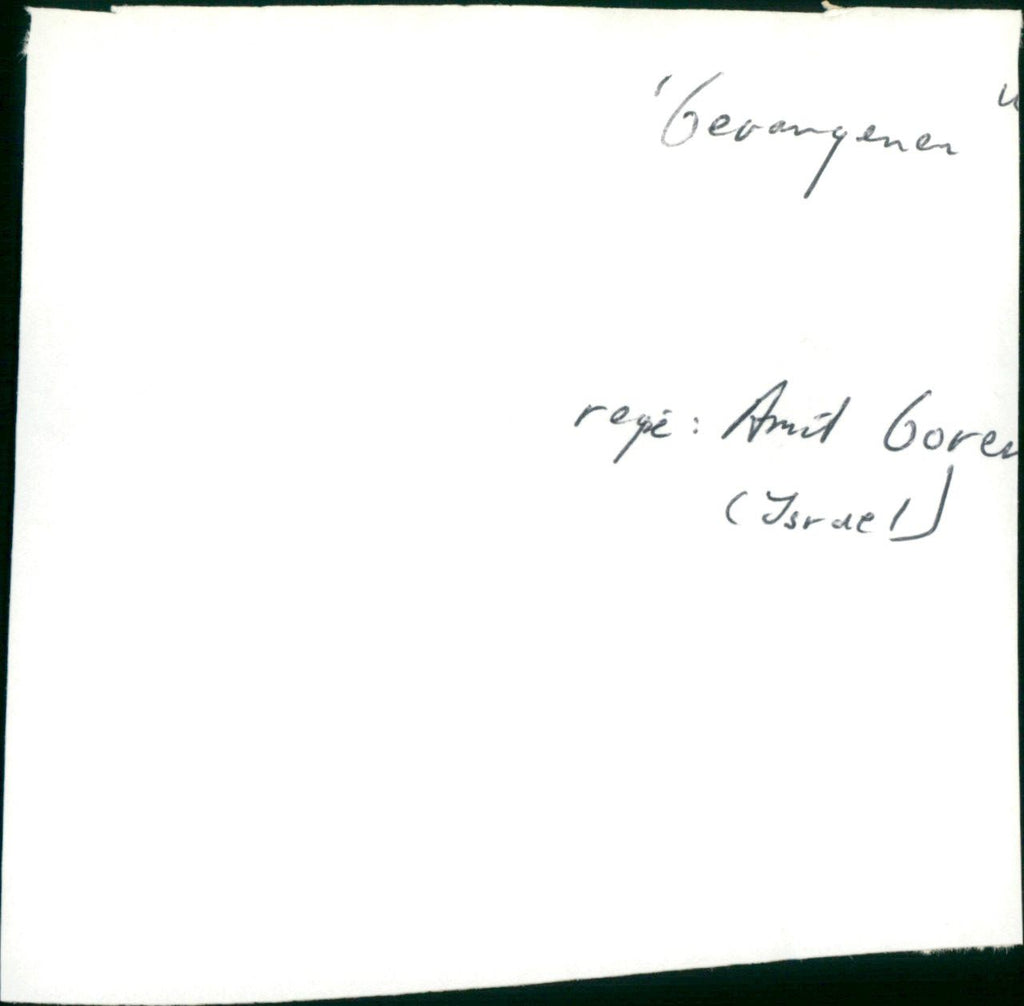 "Gevangenen"
regie: Amit Goren
(Israel)